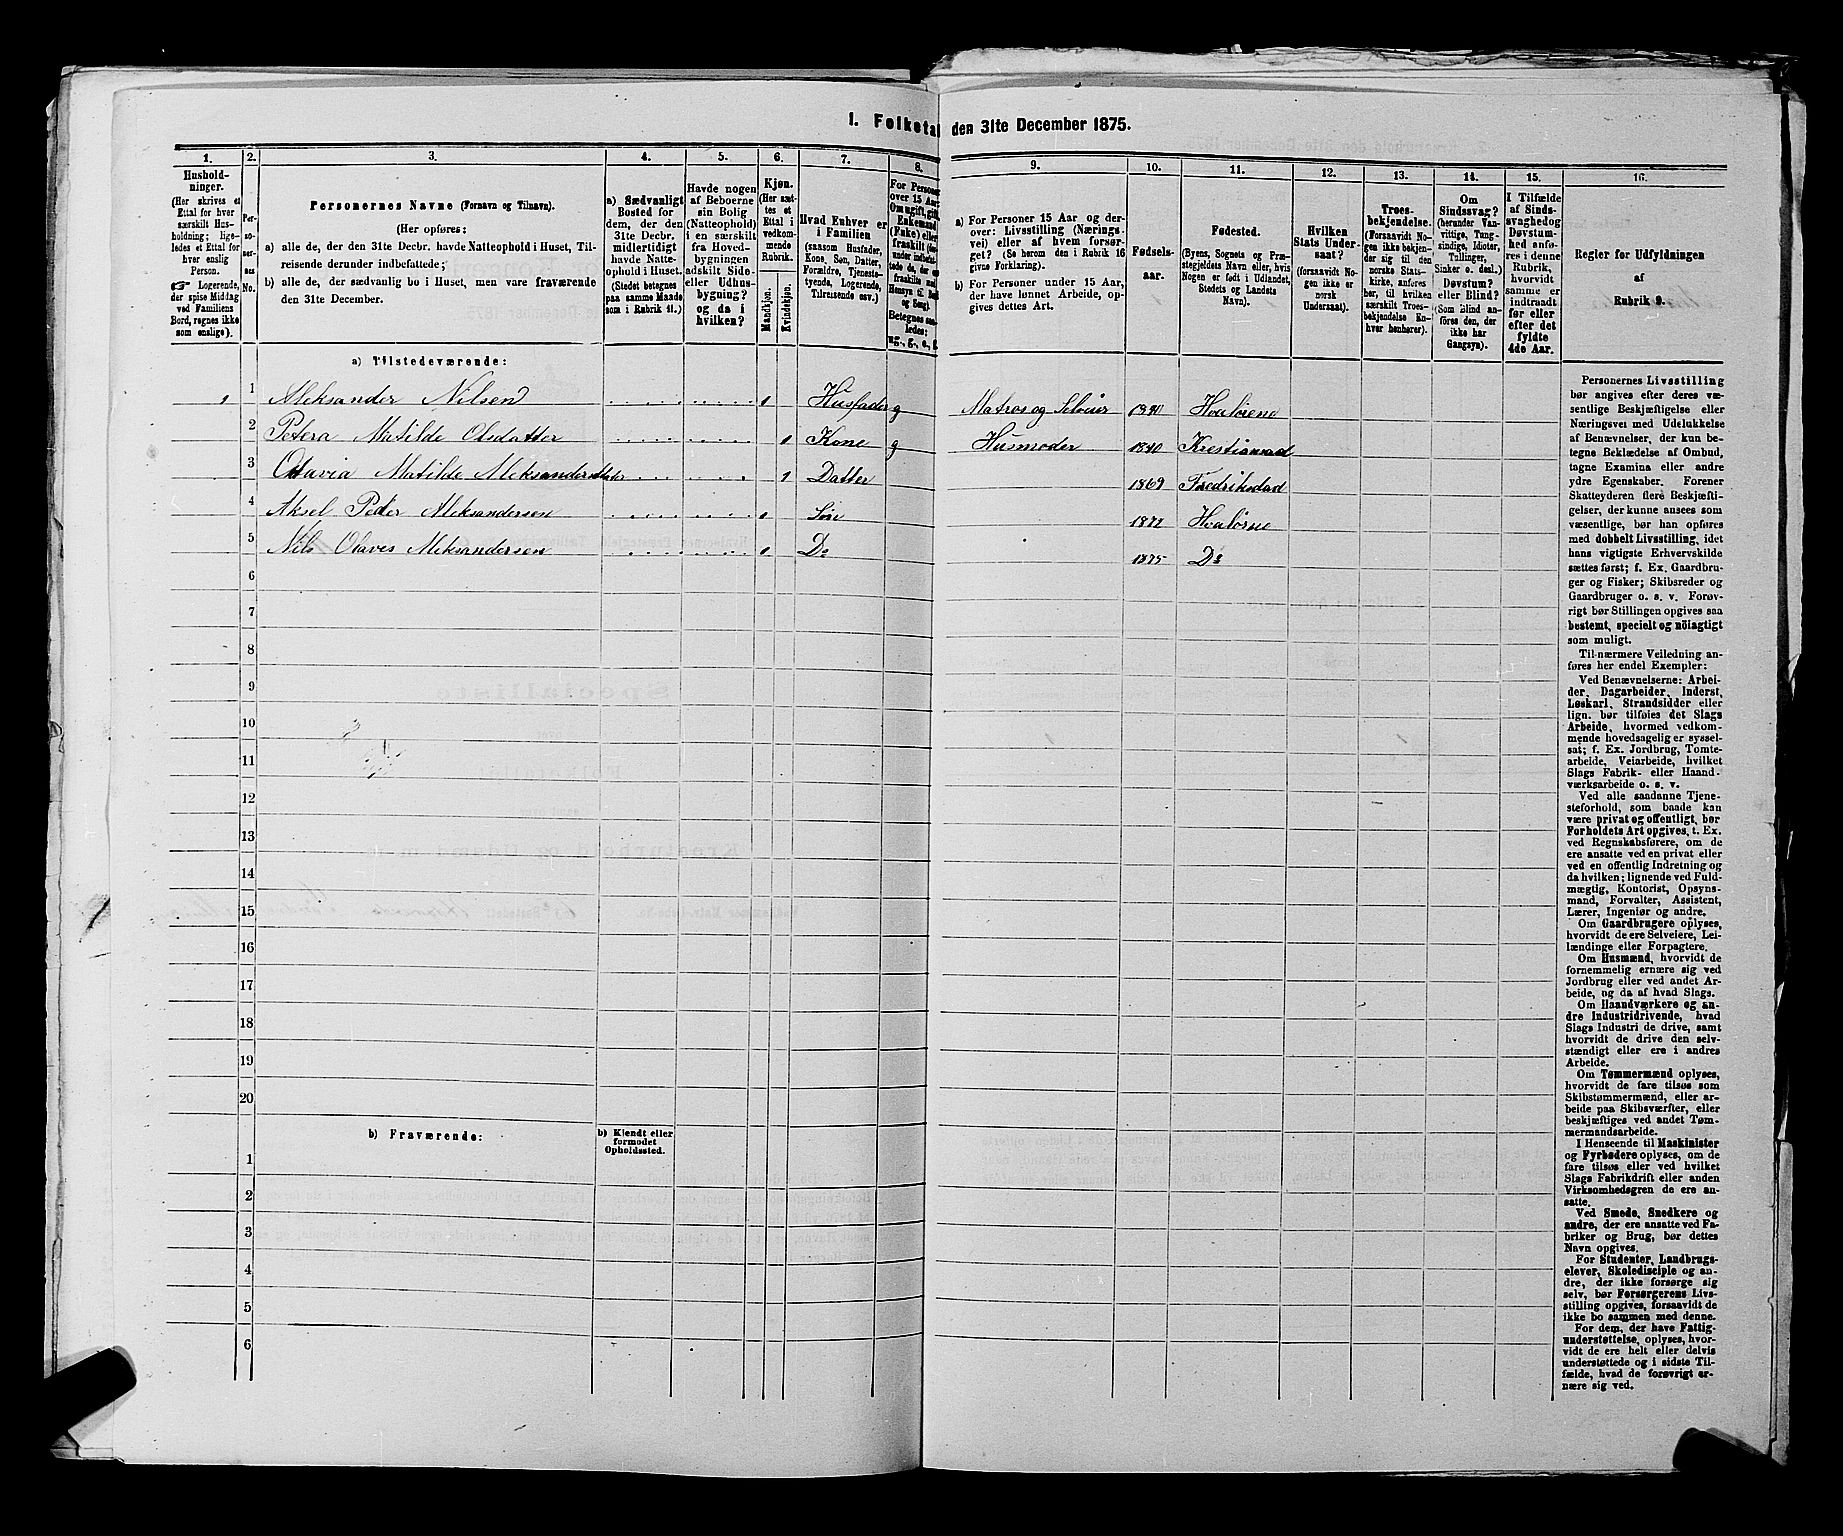 1. Folketal den 31te December 1875.
1. 2. 3. 4. 5. 6. 7. 8. 9. 10. 11. 12. 13. 14. 15. 16.
Hushold-
ninger.
(Her skrives et
Ettal for hver
særskilt Hus-
holdning; lige-
ledes et Ettal for
hver enslig
Person.
☞ Logerende,
der spise Middag
ved Familiens
Bord, regnes ikke
som enslige).
Per-
so-
ner-
nes
No.
Personernes Navne (Fornavn og Tilnavn).
(Her opføres:
a) alle de, der den 31te Decbr. havde Natteophold i Huset, Til-
reisende derunder indbefattede;
b) alle de, der sædvanlig bo i Huset, men vare fraværende
den 31te December.
a) Sædvanligt
Bosted for
dem, der den
31te Decbr.
midlertidigt
havde Natte-
ophold i Huset.
(Stedet betegnes
paa samme Maade
som i Rubrik 11.)
Havde nogen
af Beboerne
sin Bolig
(Natteophold)
i en særskilt
fra Hoved-
bygningen
adskilt Side-
eller Udhus-
bygning?
og da i
hvilken?
Kjøn.
(Her sæt-
tes et
Ettal i
vedkom-
mende
Rubrik.
Mandkjøn.
Kvindekjøn.
Hvad Enhver er
i Familien
(saasom Husfader,
Kone, Søn, Datter,
Forældre, Tjeneste-
tyende, Logerende,
Tilreisende osv.)
a) For Personer 15 Aar og der-
over: Livsstilling (Nærings-
vei) eller af hvem forsør-
get? (Se herom den i Rubrik 16
givne Forklaring).
b) For Personer under 15 Aar,
der have lønnet Arbeide, op-
gives dettes Art.
Fødsels-
aar.
Fødested.
(Byens, Sognets og Præ-
stegjeldets Navn eller, hvis
Nogen er født i Udlandet,
Stedets og Landets
Navn).
Hvilken
Stats Under-
saat?
(forsaavidt No-
gen ikke er
norsk
Undersaat).
Troes-
bekjendelse.
(Forsaavidt No-
gen ikke bekjen-
der sig til den
norske Stats-
kirke, anføres
her, til hvilken
særskilt Troes-
bekjendelse En-
hver henhører).
Om
Sindssvag?
(herunder Van-
vittige, Tung-
sindige, Idioter,
Tullinger,
Sinker o. desl.)
Døvstum?
eller Blind?
(Som Blind an-
føres den, der
ikke har
Gangsyn).
I Tilfælde
af Sinds-
svaghed og
Døvstum-
hed anfø-
res i denne
Rubrik,
hvorvidt
samme er
indtraadt
før eller
efter det
fyldte
4de Aar.
Regler for Udfyldningen
af
Rubrik 9.
a) Tilstedeværende:
1 Aleksander Nilsen Husfader g Matros og Seloeier 1840 Hvaløerne
2 Petera Matilde Olsdatter Kone g Husmoder 1840
3 Otavia Matilde Aleksandersdatter Datter 1869 Fredriksstad
4 Aksel Peder Aleksandersen Søn 1872 Hvaløerne
5 Nils Olaves Aleksandersen Do 1875 Do
6
7
8
9
10
11
12
13
14
15
16
17
18
19
20
b) Fraværende:
b) Kjendt eller
formodet
Opholdssted.
1
2
3
4
5
6
Personernes Livsstilling
bør angives efter deres væ-
sentlige Beskjæftigelse eller
Næringsvei med Udelukkelse
af Benævnelser, der kun be-
tegne Beklædelse af Ombud,
tagne Examina eller andre
ydre Egenskaber. Forener
Skatteyderen flere Beskjæfti-
gelser, der kunne ansees som
væsentlige, bør han opføres
med dobbelt Livsstilling, idet
hans vigtigste Erhvervskilde
sættes først; f. Ex. Gaardbru-
ger og Fisker; Skibsreder og
Gaardbruger o. s. v. Forøv-
rigt bør Stillingen opgives saa
bestemt, specielt og nöiagtigt
som muligt.
Til nærmere Veiledning an-
føres her endel Exempler:
Ved Benævnelserne: Arbei-
der, Dagarbeider, Inderst,
Løskarl, Strandsidder eller
lign. bør tilføies det Slags
Arbeide, hvormed vedkom-
mende hovedsagelig er syssel-
sat; f. Ex. Jordbrug, Tomte-
arbeide, Veiarbeide, hvilket
Slags Fabrik- eller Haand-
værksarbeide o. s. v.
Ved alle saadanne Tjene-
steforhold, som baade kan
være privat og offentligt, bør
Forholdets Art opgives, t. Ex.
ved Regnskabsførere, om de
ere ansatte ved en privat eller
ved en offentlig Indretning og
da hvilken; lignende ved Fuld-
mægtig, Kontorist, Opsyns-
mand, Forvalter, Assistent,
Lærer, Ingeniør og andre.
Om Gaardbrugere oplyses,
hvorvidt de ere Selveiere, Lei-
lændinge eller Forpagtere.
Om Husmænd, hvorvidt de
fornemmelig ernære sig ved
Jordbrug eller ved andet Ar-
beide, og da af hvad Slags.
Om Haandværkere og an-
dre Industridrivende, hvad
Slags Industri de drive, samt
hvorvidt de drive den selv-
stændigt eller ere i andres
Arbeide.
Om Tømmermænd oplyses,
hvorvidt de fare tilsøs som
Skibstømmermænd, eller ar-
beide paa Skibsværfter, eller
beskjæftiges ved andet Tøm-
mermandsarbeide.
I Henseende til Maskinister
og Fyrbødere oplyses, om de
fare tilsøs eller ved hvilket
Slags Fabrikdrift eller anden
Virksomhedsgren de ere an-
satte.
Ved Smede, Snedkere og
andre, der ere ansatte ved Fa-
briker og Brug, bør dettes
Navn opgives.
For Studenter, Landbrugs-
elever, Skoledisciple og an-
dre, der ikke forsørge sig
selv, bør Forsørgerens Livs-
stilling opgives, forsaavidt de
ikke bo sammen med denne.
For dem, der have Fattig-
understøttelse, oplyses, hvor-
vidt de ere helt eller delvis
understøttede og i sidste Til-
fælde, hvad de forøvrigt er-
nære sig ved.